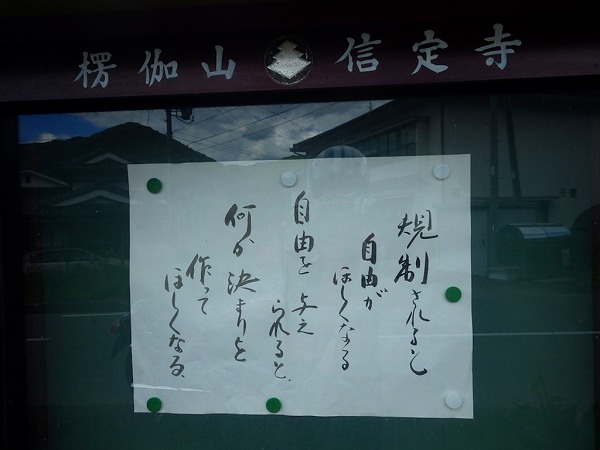 楞伽山 信定寺
規制されると
自由が
ほしくなる
自由を与え
られると、
何か決まりを
作って
ほしくなる、